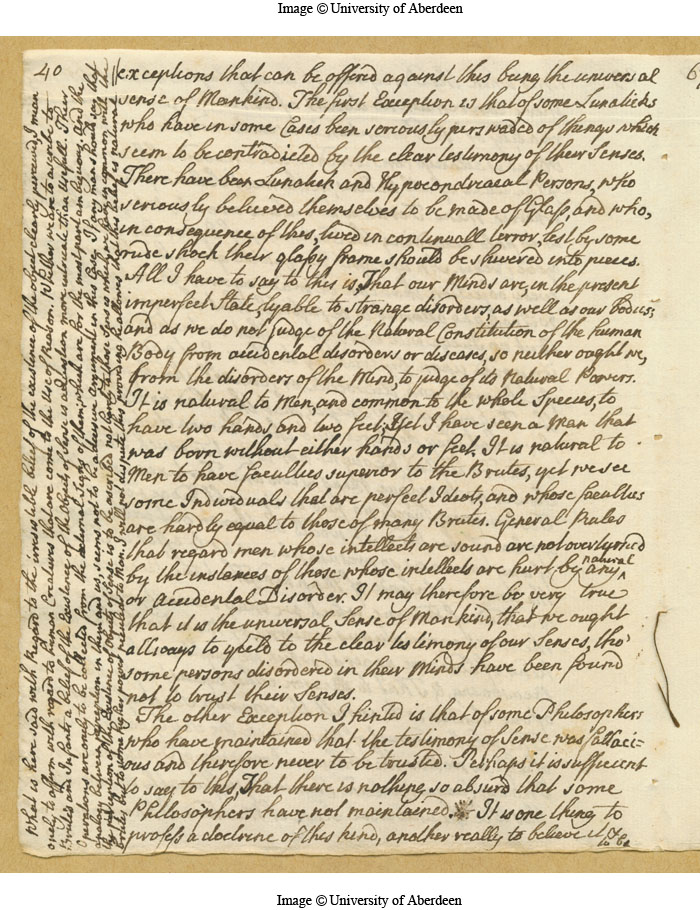 Image © University of Aberdeen
40
exceptions that can be offered against this being the universal
sense of Mankind. The first Exception is that of some Lunaticks
who have in some Cases been seriously perswaded of things which
seem to be contradicted by the clear testimony of their Senses.
There have been Lunatick and Hypocondreacal Persons, who
seriously believed themselves to be made of Glass, and who,
in consequence of this, lived in continuall terror, lest by some
rude shock their glassy frame should be shivered into pieces.
All I have to say to this is, That our Minds are, in the present
imperfect State, lyable to strange disorders, as well as our bodies;
and as we do not judge of the Natural Constitution of the human
Body from accidental disorders or diseases, so neither ought we,
from the disorders of the Mind, to judge of its Natural Powers.
It is natural to Men, and common to the whole Species, to
have two hands and two feet; Yet I have seen a Man that
was born without either hands or feet. It is natural to
Men to have faculties superior to the Brutes, yet we see
some Individuals that are perfect Idiots, and whose faculties
are hardly equal to those of many Brutes. General Rules
that regard men whose intellects are sound are not overturned
by the instances of those whose intellects are hurt by any natural
or accidental Disorder. It may therefore be very true
that it is the universal Sense of Mankind, that we ought
allways to yield to the clear testimony of our Senses, tho'
some persons disordered in their Minds have been found
not to trust their Senses.
The other Exception I hinted is that of some Philosophers
who have maintained that the testimony of Sense was fallaci=
ous and therefore never to be trusted. Perhaps it is sufficient
to say to this, That there is nothing so absurd that some
Philosophers have not maintained. It is one thing to
profess a doctrine of this kind, another really to believe it & 
to be
What is here said with regard to the irresistible belief of the existence of the object clearly perceived, I mean
onely to affirm with regard to human Creatures that are come to the use of Reason. Whither we are to ascribe to
Brutes and Infants a belief of the Existency of the Objects of Sense is a question more intricate than usefull. Their
Operations are onely to be collected from the external signs of them, which are for the most part ambiguous. And the
analogy between perception in them and us, seems not to be a decisive argument in this Case. If any man should say that
Image © University of Aberdeen